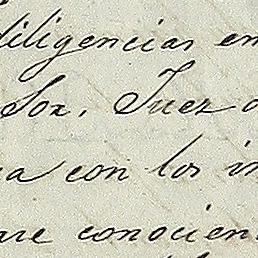 diligencias en
Sor. Juez d
a con los in
are conocien